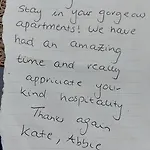 stay in your gorgeous
apartments! We have
had an amazing
time and really
appriciate your
kind hospitality
Thanks again
Kate, Abbie